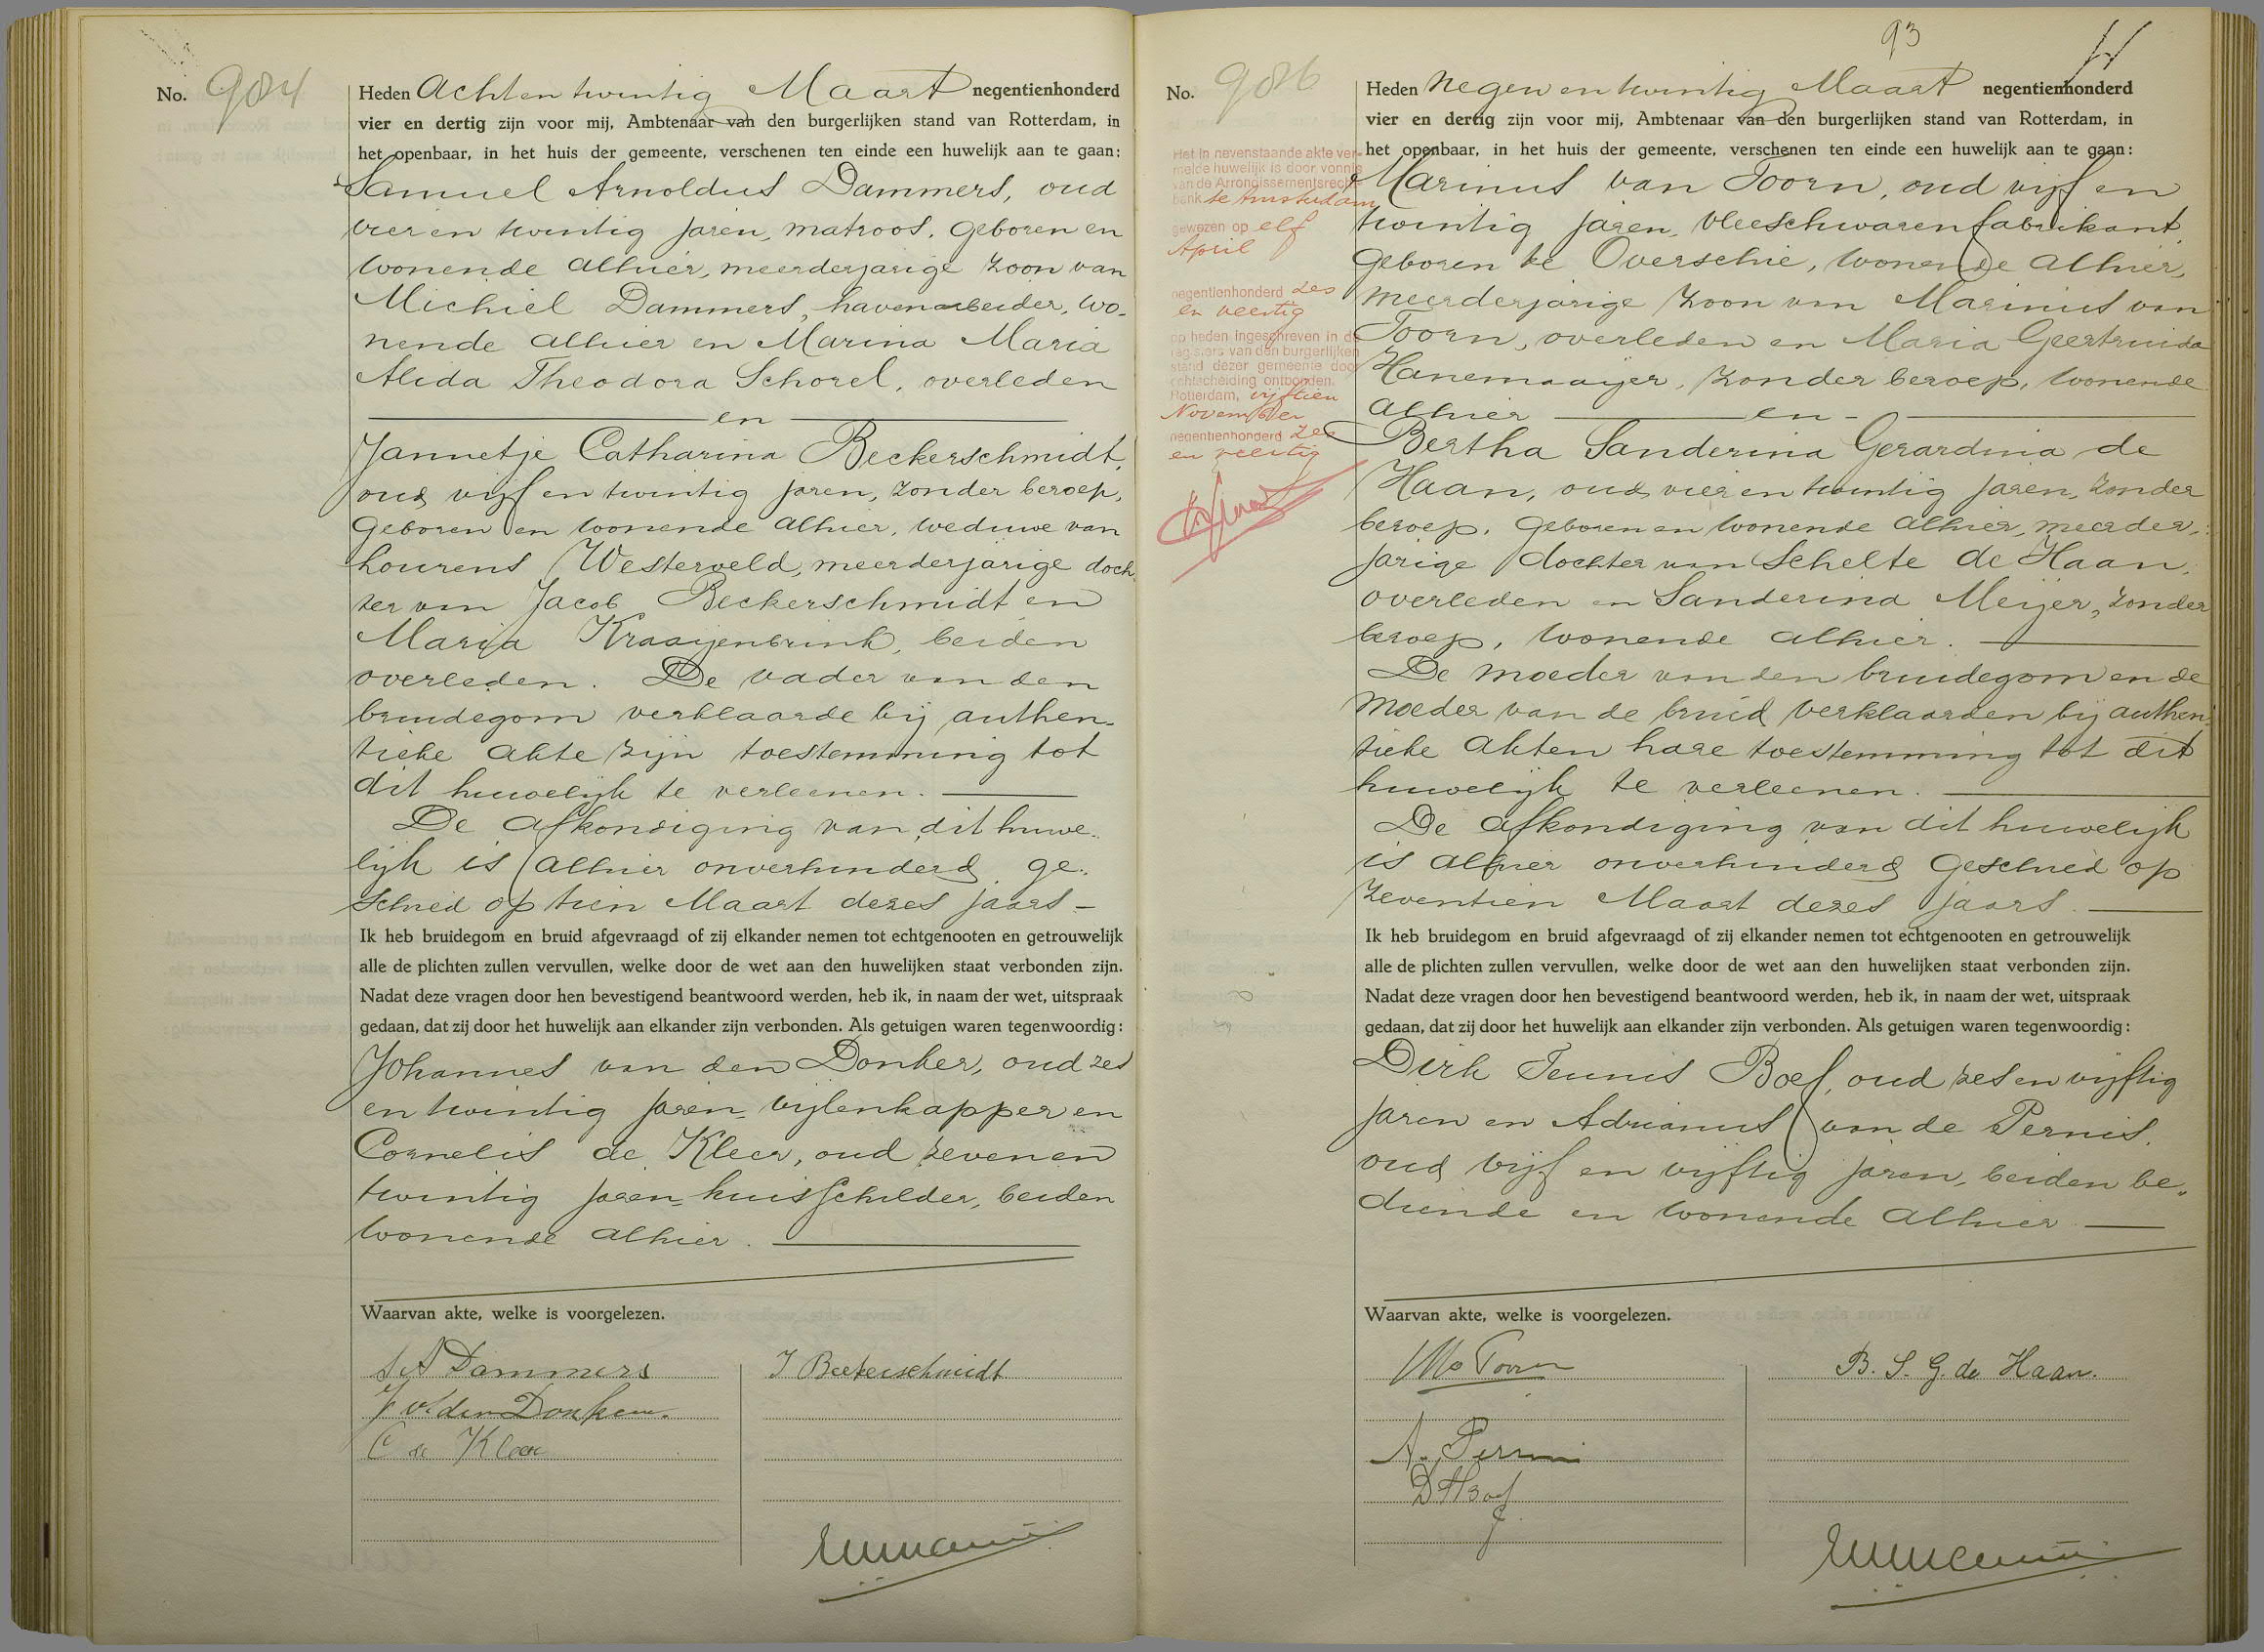 No. 984
Heden Acht en twintig Maart negentienhonderd
vier en dertig zijn voor mij, Ambtenaar van den burgerlijken stand van Rotterdam, in
het openbaar, in het huis der gemeente, verschenen ten einde een huwelijk aan te gaan:
Samuel Arnoldus Dammers, oud
vier en twintig jaren, matroos, geboren en
wonende alhier, meerderjarige zoon van
Michiel Dammers, havenarbeider, wo-
nende alhier en Marina Maria
Alida Theodora Schorel, overleden
en
Jannetje Catharina Beckerschmidt,
oud vijf en twintig jaren, zonder beroep,
geboren en wonende alhier, weduwe van
Lourens Westerveld, meerderjarige doch-
ter van Jacob Beckerschmidt en
Maria Kraaijenbrink, beiden
overleden. De vader van den
bruidegom verklaarde bij authen-
tieke akte zijn toestemming tot
dit huwelijk te verleenen.
De afkondiging van dit huwe-
lijk is alhier onverhinderd ge-
schied op tien Maart dezes jaars -
Ik heb bruidegom en bruid afgevraagd of zij elkander nemen tot echtgenooten en getrouwelijk
alle de plichten zullen vervullen, welke door de wet aan den huwelijken staat verbonden zijn.
Nadat deze vragen door hen bevestigend beantwoord werden, heb ik, in naam der wet, uitspraak
gedaan, dat zij door het huwelijk aan elkander zijn verbonden. Als getuigen waren tegenwoordig:
Johannes van den Donker, oud zes
en twintig jaren, vijlenkapper en
Cornelis de Kleer, oud zeven en
twintig jaren, huisschilder, beiden
wonende alhier.
Waarvan akte, welke is voorgelezen.
S A Dammers
J Beckerschmidt
J v/ den Donker
C de Kleer
93
No. 986
Heden Negen en twintig Maart negentienhonderd
vier en dertig zijn voor mij, Ambtenaar van den burgerlijken stand van Rotterdam, in
het openbaar, in het huis der gemeente, verschenen ten einde een huwelijk aan te gaan:
Marinus van Toorn, oud vijf en
twintig jaren, vleeschwarenfabrikant,
geboren te Overschie, wonende alhier,
meerderjarige zoon van Marinus van
Toorn, overleden en Maria Geertruida
Hanemaaijer, zonder beroep, wonende
alhier en
Bertha Sanderina Gerardina de
Haan, oud vier en twintig jaren, zonder
beroep, geboren en wonende alhier, meerder-
jarige dochter van Schelte de Haan,
overleden en Sanderina Meijer, zonder
beroep, wonende alhier.
De moeder van den bruidegom en de
moeder van de bruid verklaarden bij authen-
tieke akten hare toestemming tot dit
huwelijk te verleenen.
De afkondiging van dit huwelijk
is alhier onverhinderd geschied op
zeventien Maart dezes jaars.
Ik heb bruidegom en bruid afgevraagd of zij elkander nemen tot echtgenooten en getrouwelijk
alle de plichten zullen vervullen, welke door de wet aan den huwelijken staat verbonden zijn.
Nadat deze vragen door hen bevestigend beantwoord werden, heb ik, in naam der wet, uitspraak
gedaan, dat zij door het huwelijk aan elkander zijn verbonden. Als getuigen waren tegenwoordig:
Dirk Teunis Boef, oud zes en vijftig
jaren en Adrianus van de Pernis,
oud vijf en vijftig jaren, beiden be-
diende en wonende alhier
Waarvan akte, welke is voorgelezen.
B. S. G. de Haan.
Het in nevenstaande akte ver-
melde huwelijk is door vonnis
van de Arrondissementsrecht-
bank te Amsterdam
gewezen op elf
April
negentienhonderd zes
en veertig
op heden ingeschreven in de
registers van den burgerlijken
stand dezer gemeente door
echtscheiding ontbonden.
Rotterdam, vijftien
November
negentienhonderd zes
en veertig